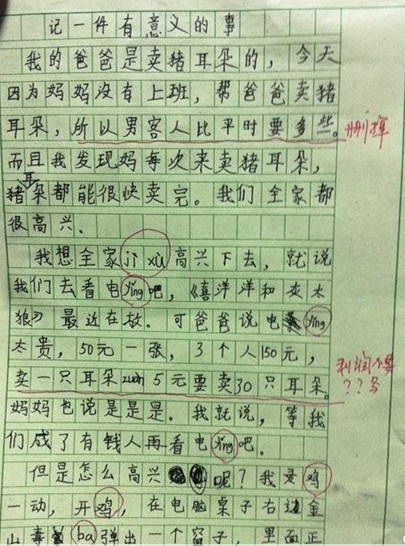 记一件有意义的事
我的爸爸是卖猪耳朵的，今天
因为妈妈没有上班，帮爸爸卖猪
耳朵，所以男客人比平时要多些。 删掉
而且我发现妈每次来卖猪耳朵，
猪耳朵都能很快卖完。我们全家都
很高兴.
我想全家jì xù高兴下去，就说
我们去看电yǐng吧，《喜洋洋和灰太
狼》最近在放。可爸爸说电yǐng
太贵，50元一张，3个人150元，
卖一只耳朵zuàn5元要卖30只耳朵。 利润不算
??多
妈妈也说是是是。我就说，等我
们成了有钱人再看电yǐng吧。
但是怎么高兴呢？我灵鸡
一动，开鸡，在电脑桌子右边金
山毒bà弹出一个窗子，里面正